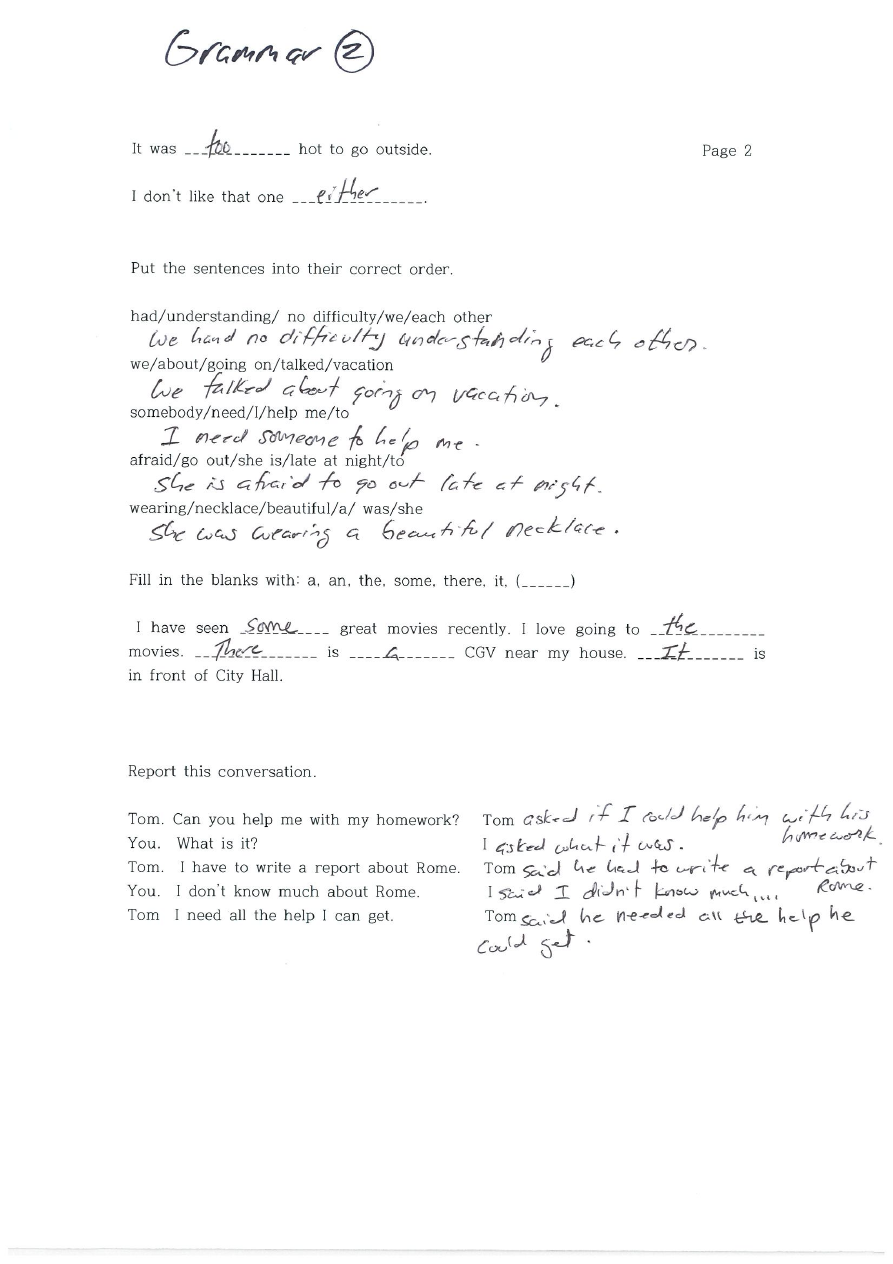 Grammar ②
It was ___too_______ hot to go outside. Page 2
I don't like that one ___either_________.
Put the sentences into their correct order.
had/understanding/ no difficulty/we/each other
We hand no difficulty understanding each other.
we/about/going on/talked/vacation
We talked about going on vacation.
somebody/need/I/help me/to
I need someone to help me.
afraid/go out/she is/late at night/to
She is afraid to go out late at night.
wearing/necklace/beautiful/a/ was/she
She was wearing a beautiful necklace.
Fill in the blanks with: a, an, the, some, there, it, (______)
I have seen _some____ great movies recently. I love going to __the________
movies. __There______ is ____a______ CGV near my house. ___It______ is
in front of City Hall.
Report this conversation.
Tom. Can you help me with my homework? Tom asked if I could help him with his
homework.
You. What is it? I asked what it was.
Tom. I have to write a report about Rome. Tom said he had to write a report about
Rome.
You. I don't know much about Rome. I said I didn't know much....
Tom I need all the help I can get. Tom said he needed all the help he
could get.